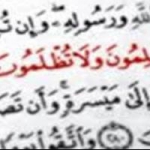 اللَّهِ وَرَسُولِهِۖ وَإِن تُ
لِمُونَ وَلَا تُظْلَمُونَ
إِلَىٰ مَيْسَرَةٍۚ وَأَن تَصَ
۝٢٨٠ وَاتَّقُوا